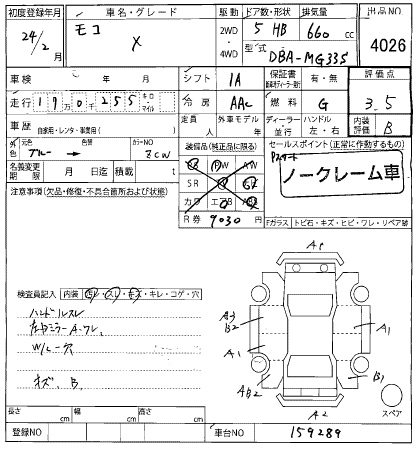 初度登録年月 車名・グレード 駆動 ドア数・形状 排気量 出品NO
24年2月 モコ X 2WD 4WD 5 HB 660 cc 4026
型式 DBA-MG33S
車検 年 月 シフト 1A 保証書 有・無 評価点
走行 17万0千255 キロ マイル 冷房 AAC 燃料 G 3.5
車歴 自家用・レンタ・事業用( ) 定員 人 外車モデル 年 ディーラー 並行 ハンドル 左・右 内装評価 B
外色 元色 ブルー → 色替 カラーNO ZCW 装備品(純正品に限る) セールスポイント(正常に作動するもの)
名義変更期限 月 日迄 積載 t SR カワ エアB ノークレーム車
注意事項(欠品・修復・不具合箇所および状態)
R券 9030 円 Fガラス トビ石・キズ・ヒビ・ワレ・リペア跡
検査員記入 内装 汚レ・スレ・キズ・キレ・コゲ・穴
ハンドルスレ
左ドアミラーA・ワレ
W/L-穴
キズ、B
A1
A3
B2
A1
A1
AB2
B1
A2
スペア
長さ cm 幅 cm 高さ cm
登録NO 車台NO 159289